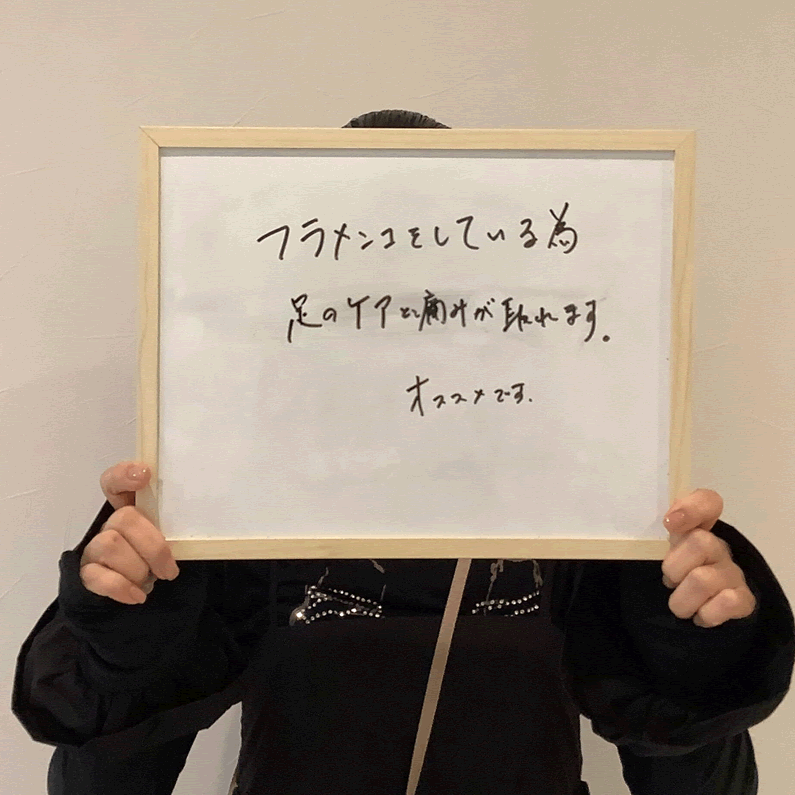 フラメンコをしている為
足のケアと痛みが取れます。
オススメです.